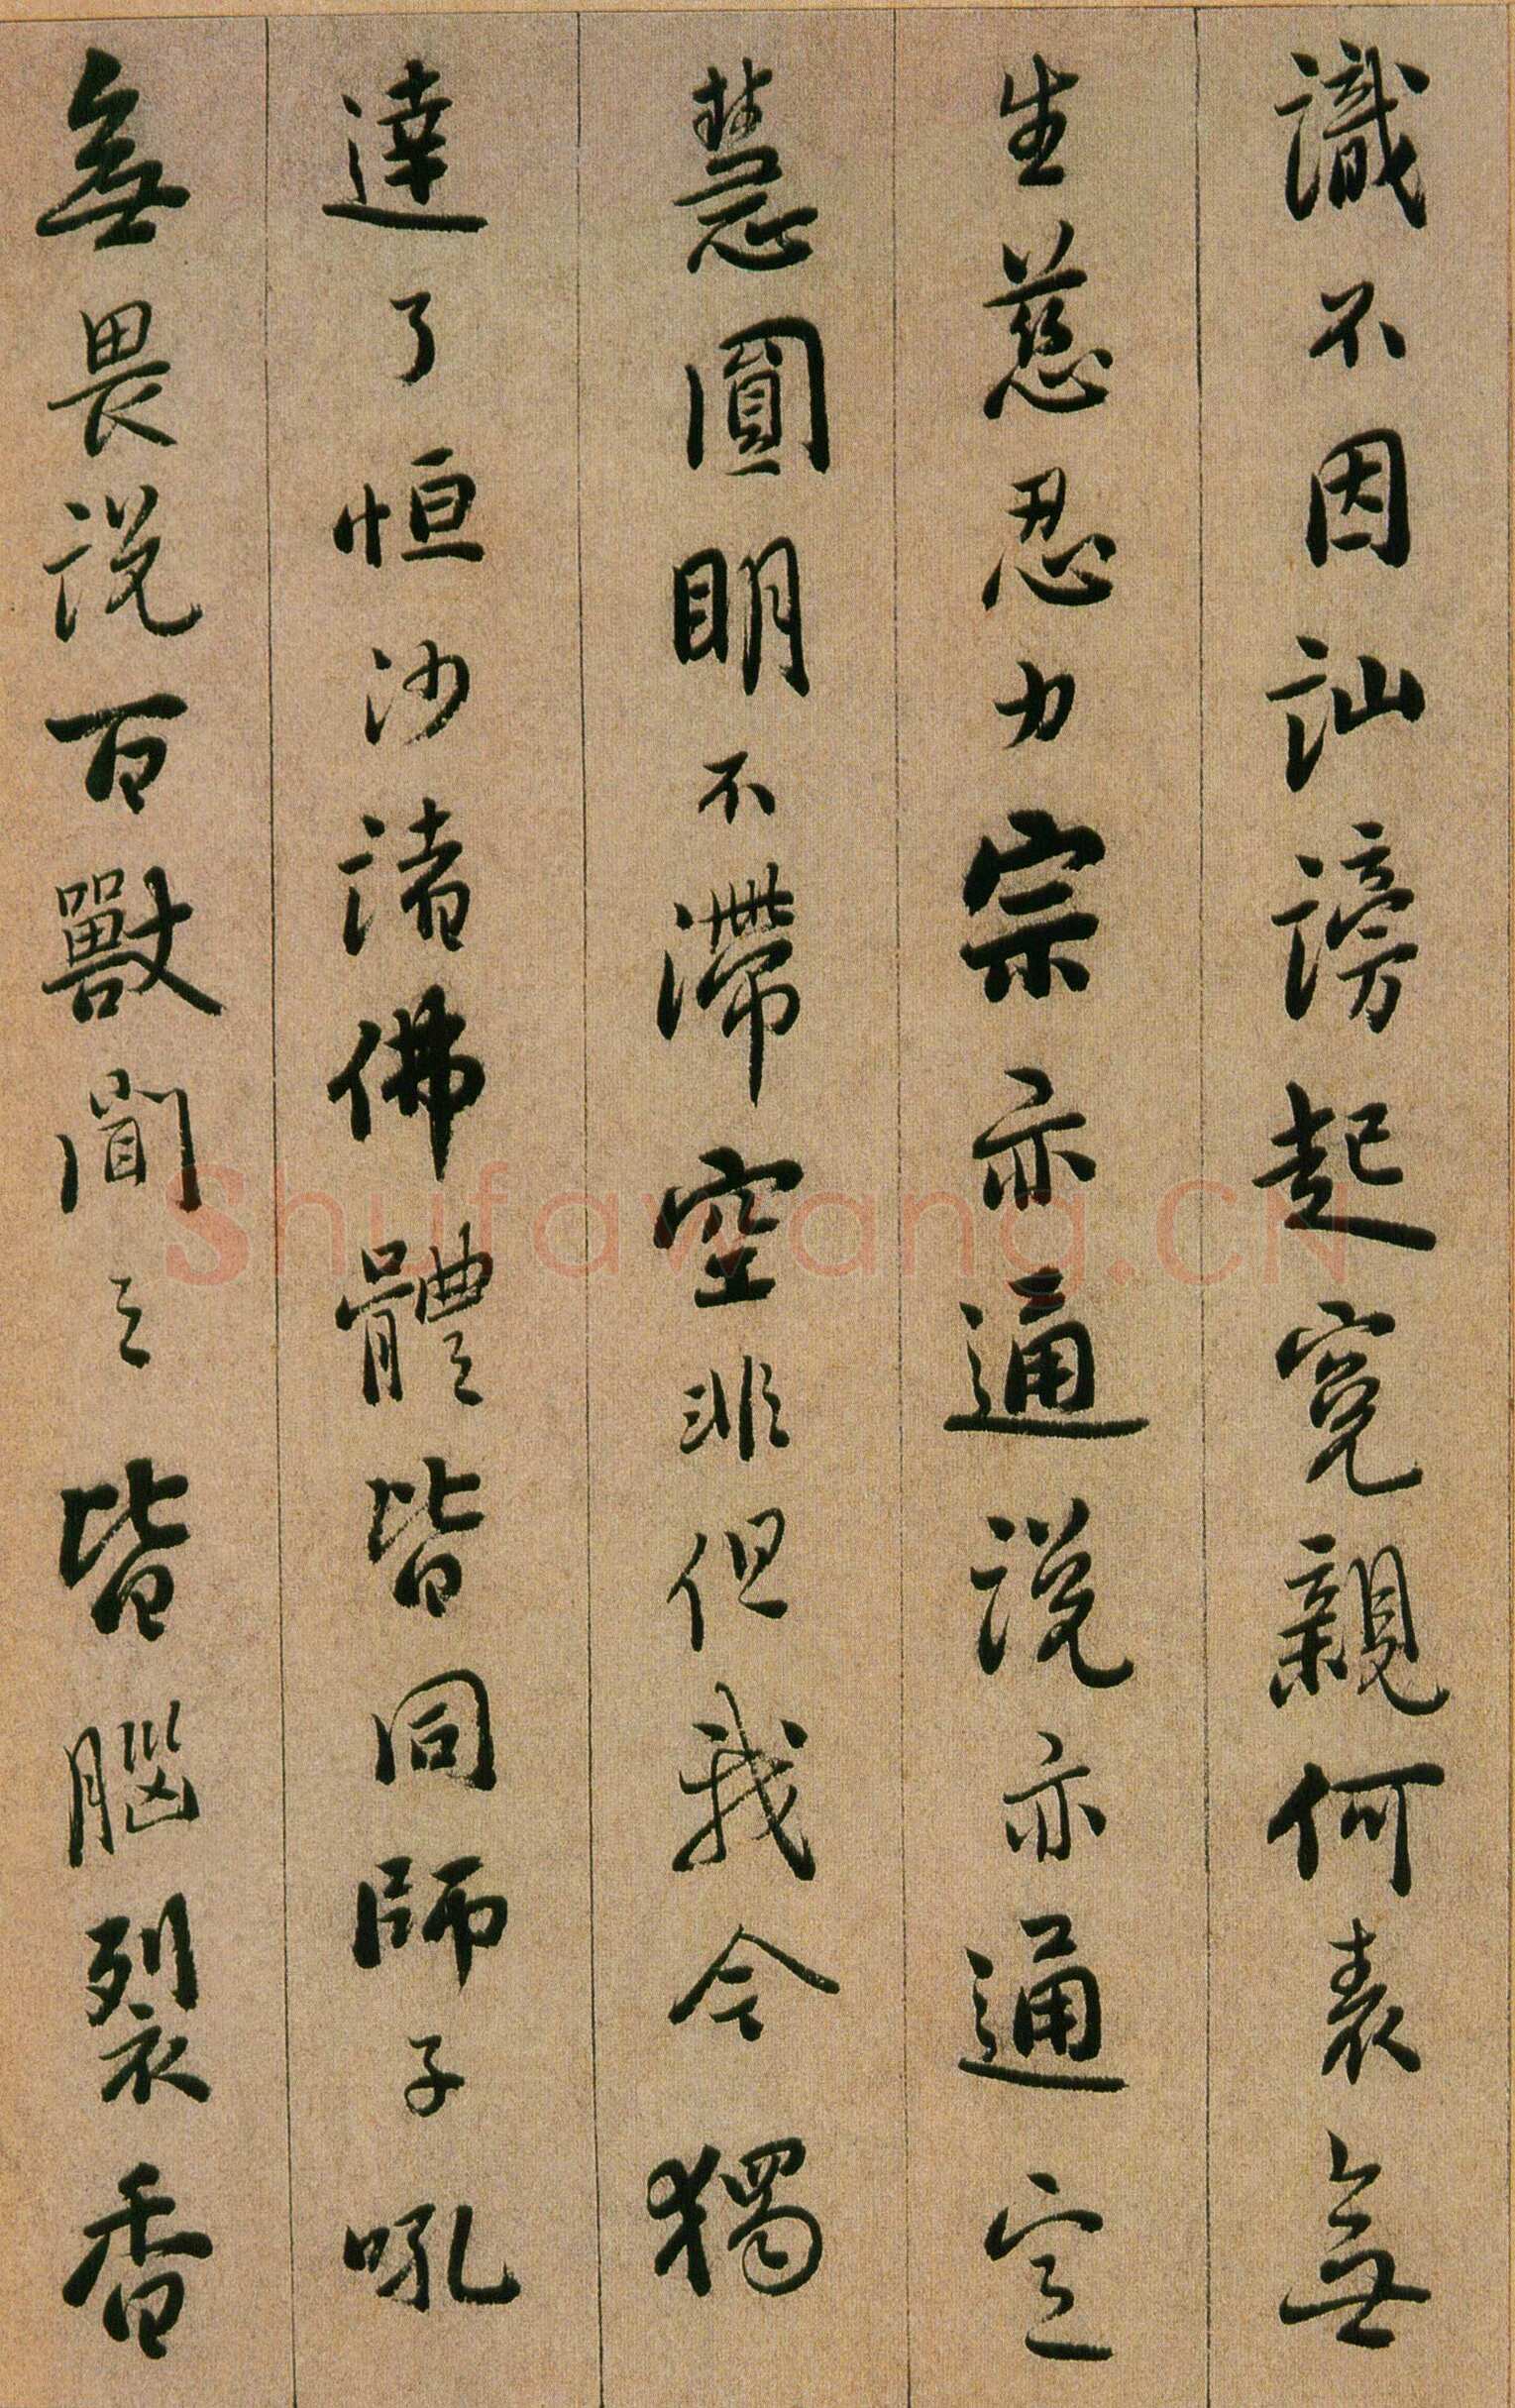 識不因訕謗起寃親何表無
生慈忍力宗亦通說亦通定
慧圓明不滯空非但我今獨
達了恒沙諸佛體皆同師子吼
無畏說百獸聞之皆腦裂香
Shufawang.CN